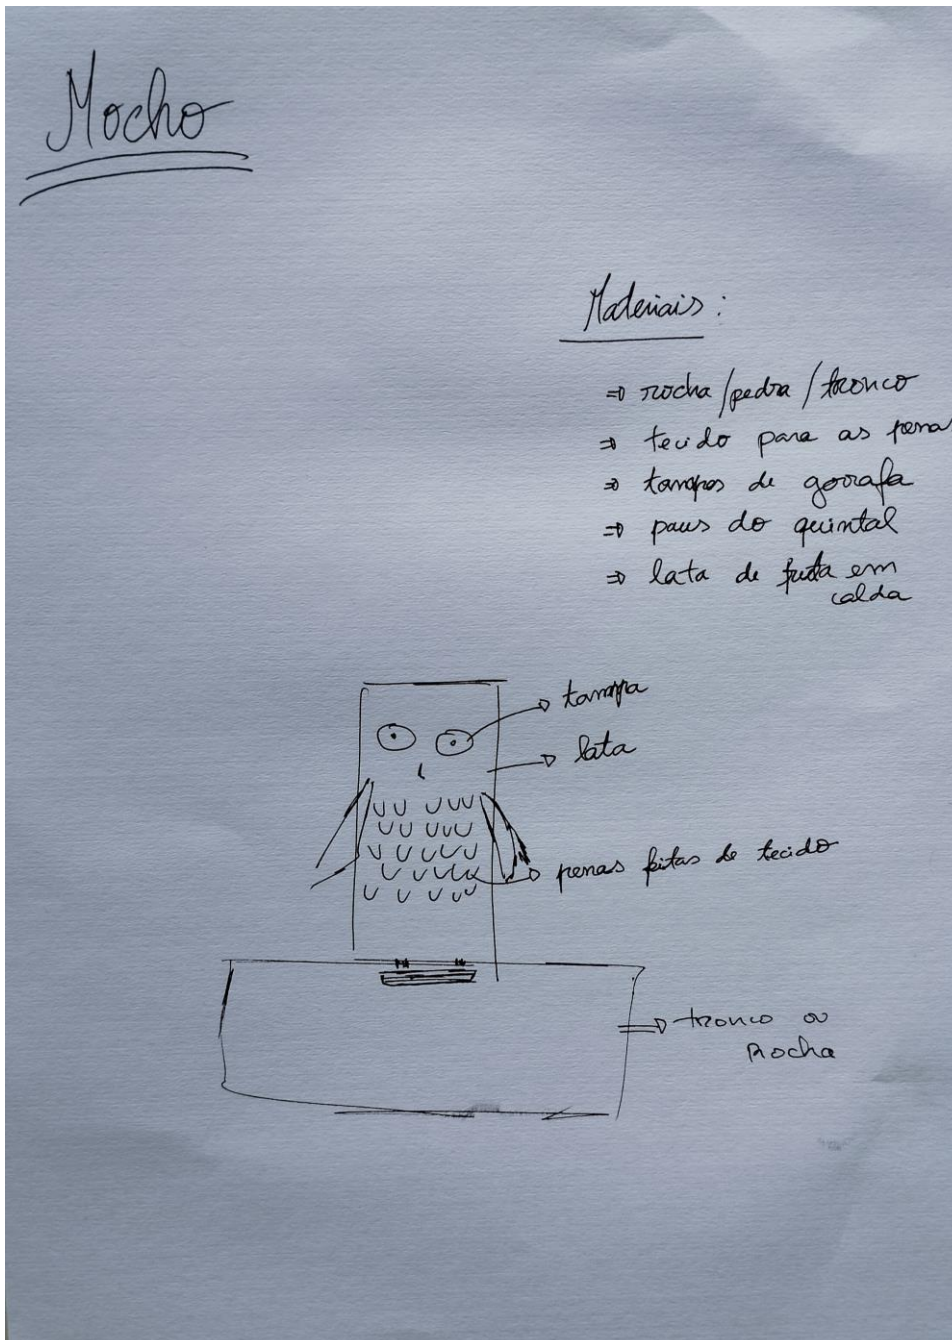 Mocho
Materiais :
⇒ rocha/pedra/tronco
⇒ tecido para as penas
⇒ tampas de garrafa
⇒ paus do quintal
⇒ lata de fruta em
calda
tampa
lata
penas feitas de tecido
tronco ou
Rocha